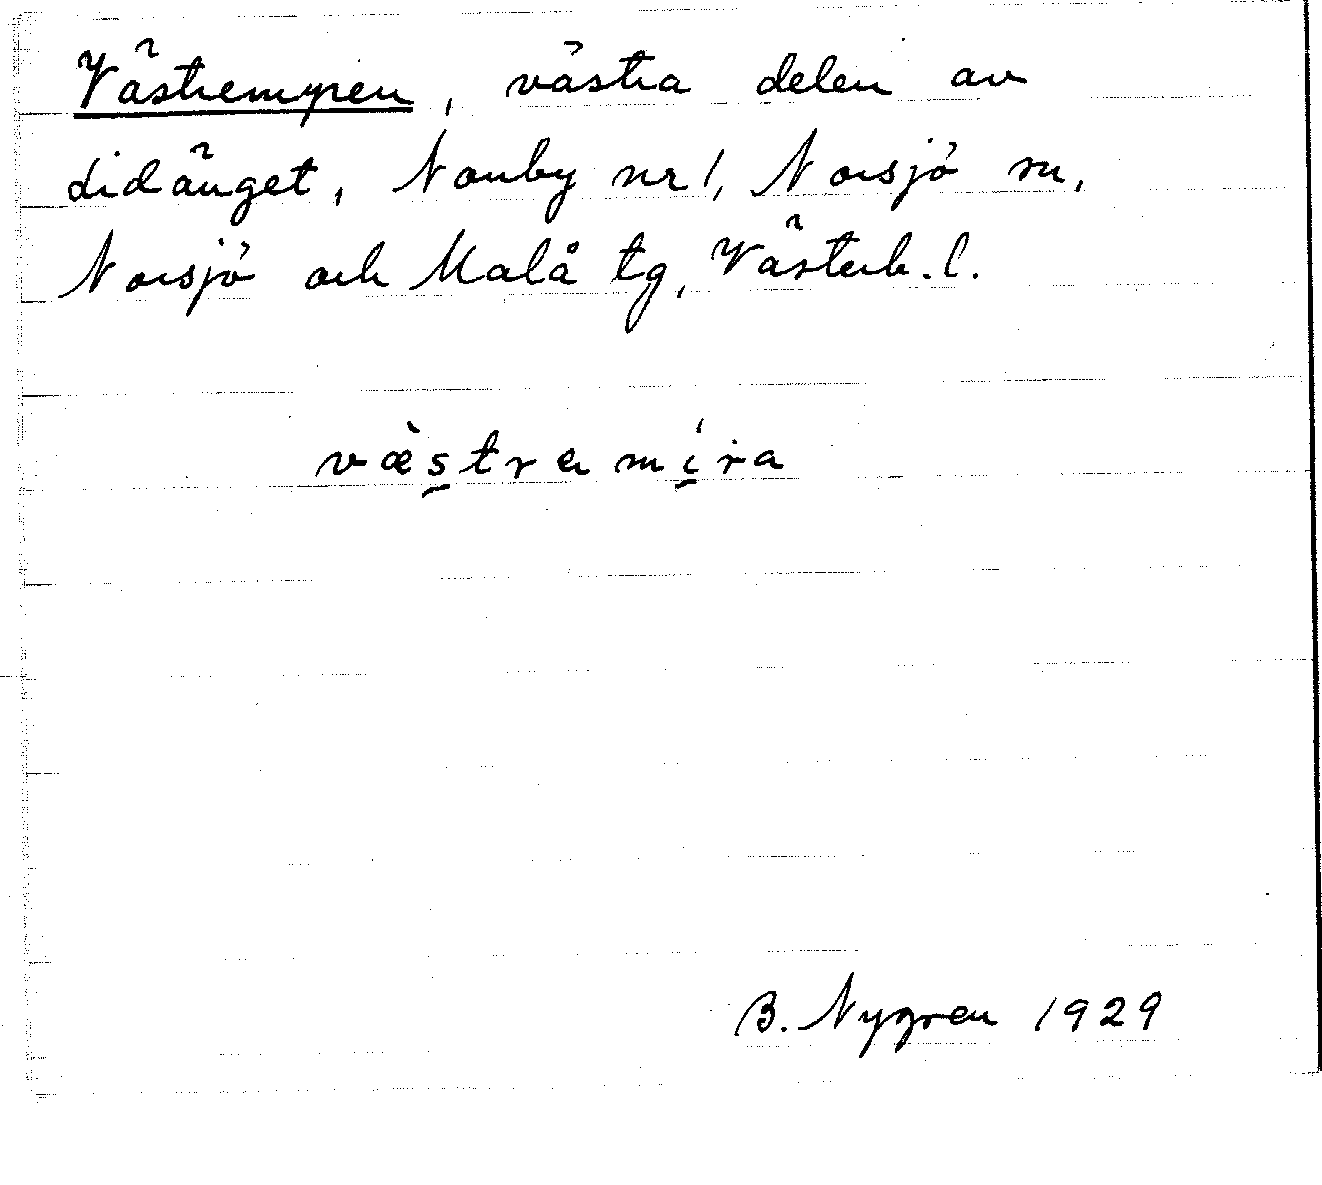 Västremyren, västra delen av
didänget, Norrby nr 1, Norsjö sn,
Norsjö och Malå tg, Västerb. l.
væ̀stre mí̱ra
B. Nygren 1929